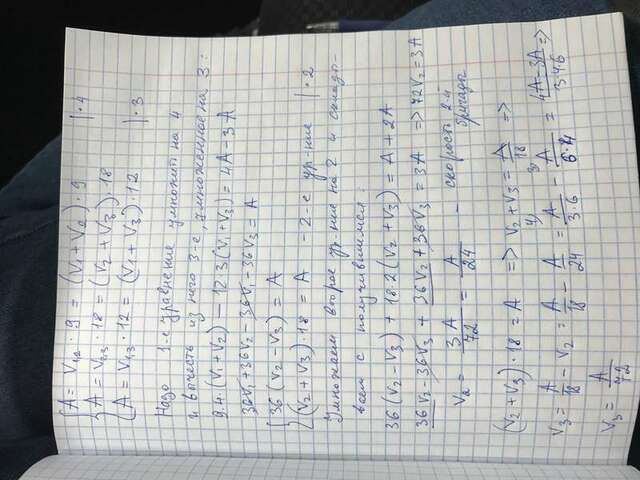 A = V₁,₂ · 9 = (V₁ + V₂) · 9 | · 4
A = V₂,₃ · 18 = (V₂ + V₃) · 18
A = V₁,₃ · 12 = (V₁ + V₃) · 12 | · 3
Надо 1-е уравнение умножить на 4
и вычесть из него 3-е, умноженное на 3:
9·4·(V₁ + V₂) - 12·3(V₁ + V₃) = 4A - 3A
36V₁ + 36V₂ - 36V₁ - 36V₃ = A
{ 36(V₂ - V₃) = A
(V₂ + V₃) · 18 = A - 2-е ур-ние | · 2
Умножаем второе ур-ние на 2 и склады-
ваем с получившимся:
36(V₂ - V₃) + 18·2(V₂ + V₃) = A + 2A
36V₂ - 36V₃ + 36V₂ + 36V₃ = 3A => 72V₂ = 3A
V₂ = 3A/72 = A/24 - скорость 2-й бригады
(V₂ + V₃) · 18 = A => V₂ + V₃ = A/18 =>
V₃ = A/18 - V₂ = A/18 - A/24 = A/3·6 - A/6·4 = 4A - 3A/3·4·6 =>
V₃ = A/72